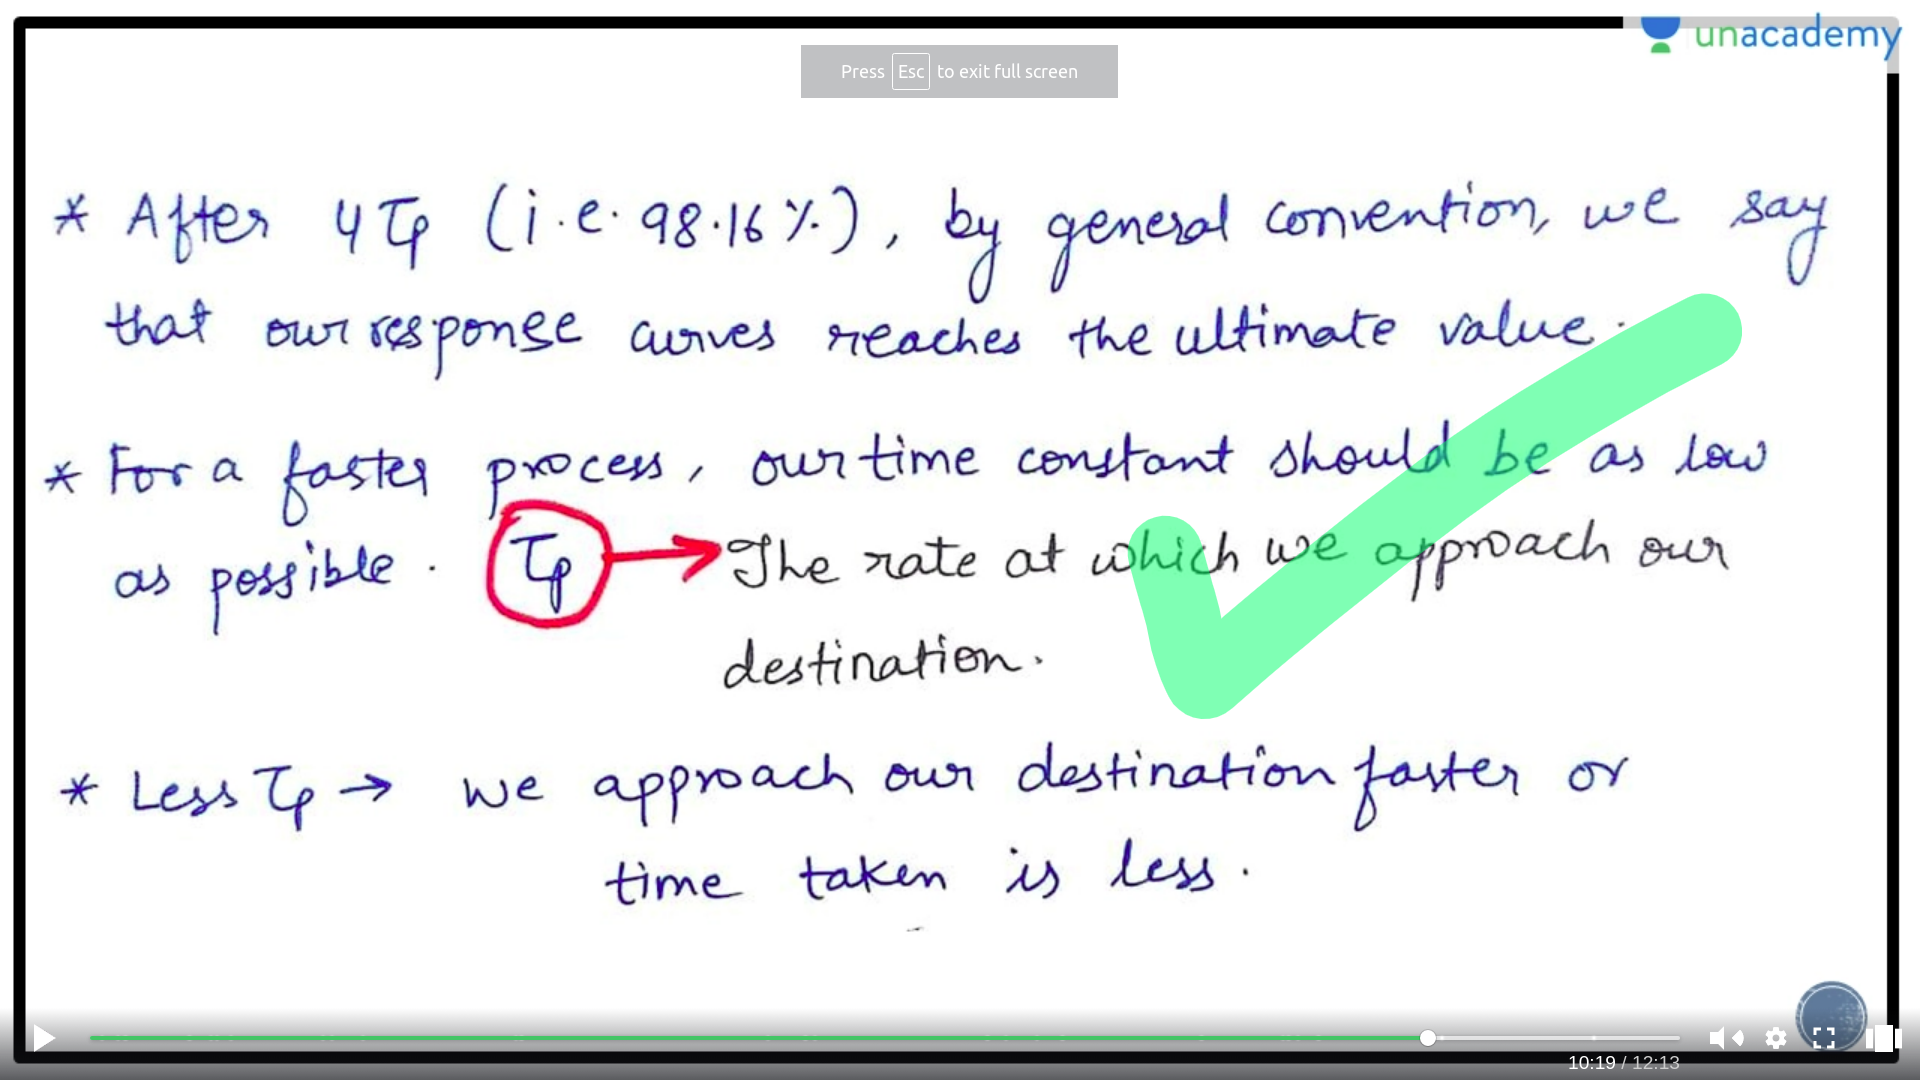 unacademy
Press Esc to exit full screen
* After 4 τp (i.e. 98.16%), by general convention, we say
that our response curves reaches the ultimate value.
* For a faster process, our time constant should be as low
as possible. τp → The rate at which we approach our
destination.
* Less τp → we approach our destination faster or
time taken is less.
10:19 / 12:13